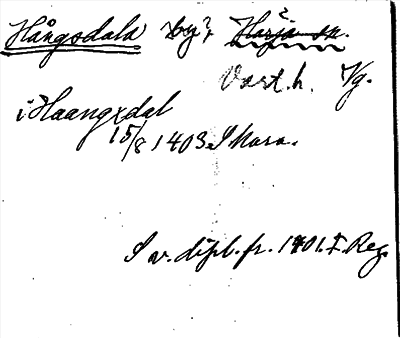 Hångsdala by?, Härja sn.
Vart. h. Vg.
i Haangxdal
15/8 1403. Skara.
S v. dipl. fr. 1401. I. Reg.